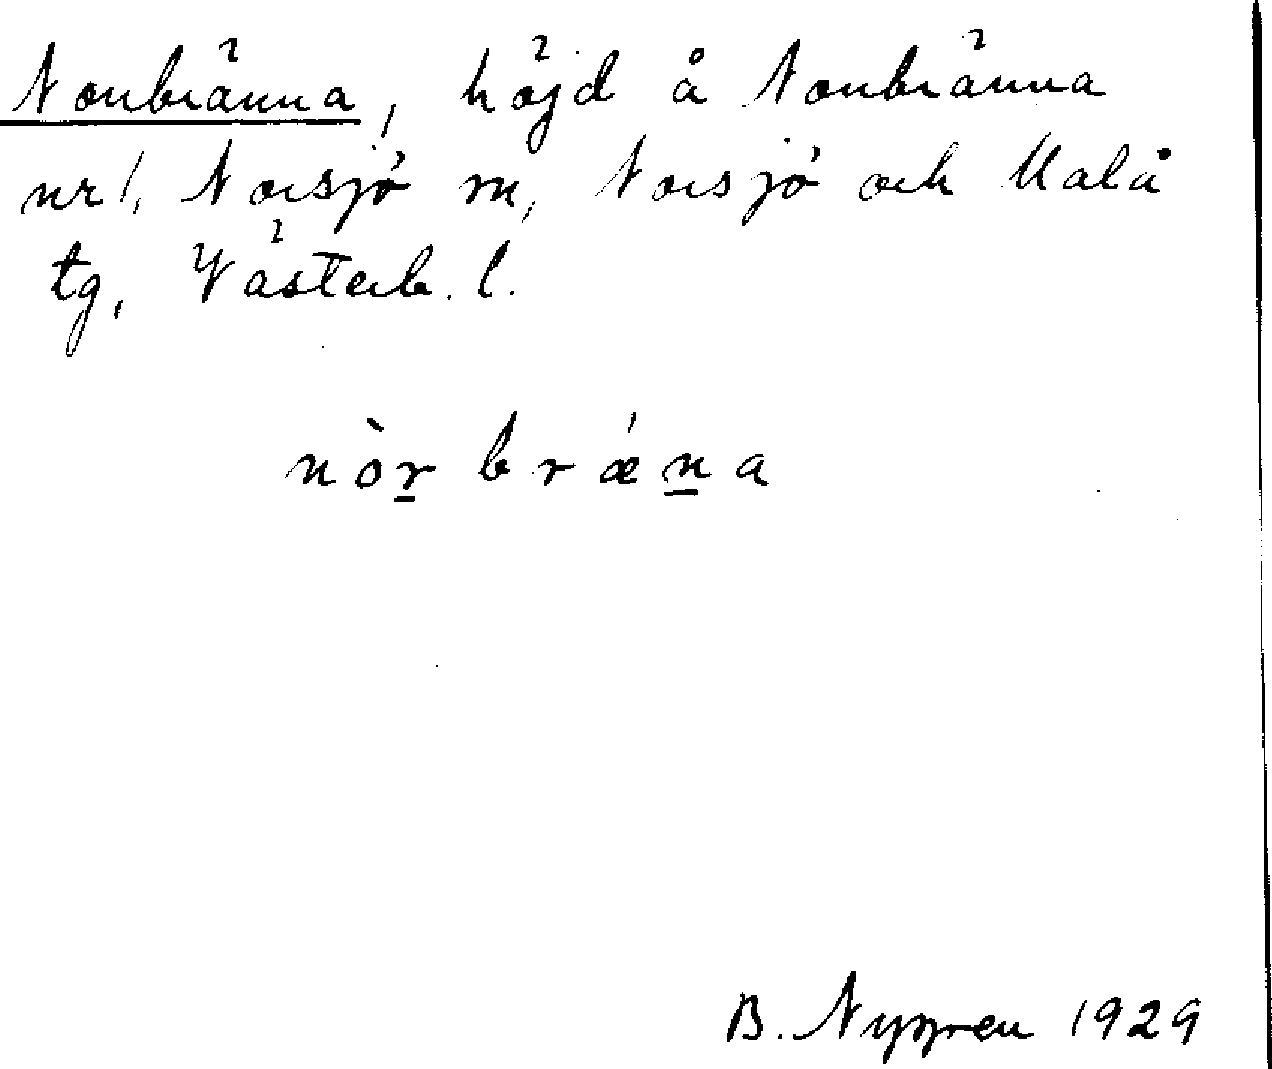 Norrbränna, höjd å Norrbränna
nr 1, Norsjö sn, Norsjö och Malå
tg, Västerb. l.
nòr̲ brǽn̲a
B. Nygren 1929